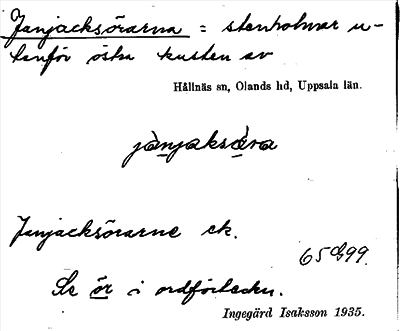 Janjacksörarna = stenholmar u-
tanför östra kusten av
Hållnäs sn, Olands hd, Uppsala län.
Janjacksörarne ek.
Se ör i ordförteckn.
Ingegärd Isaksson 1935.